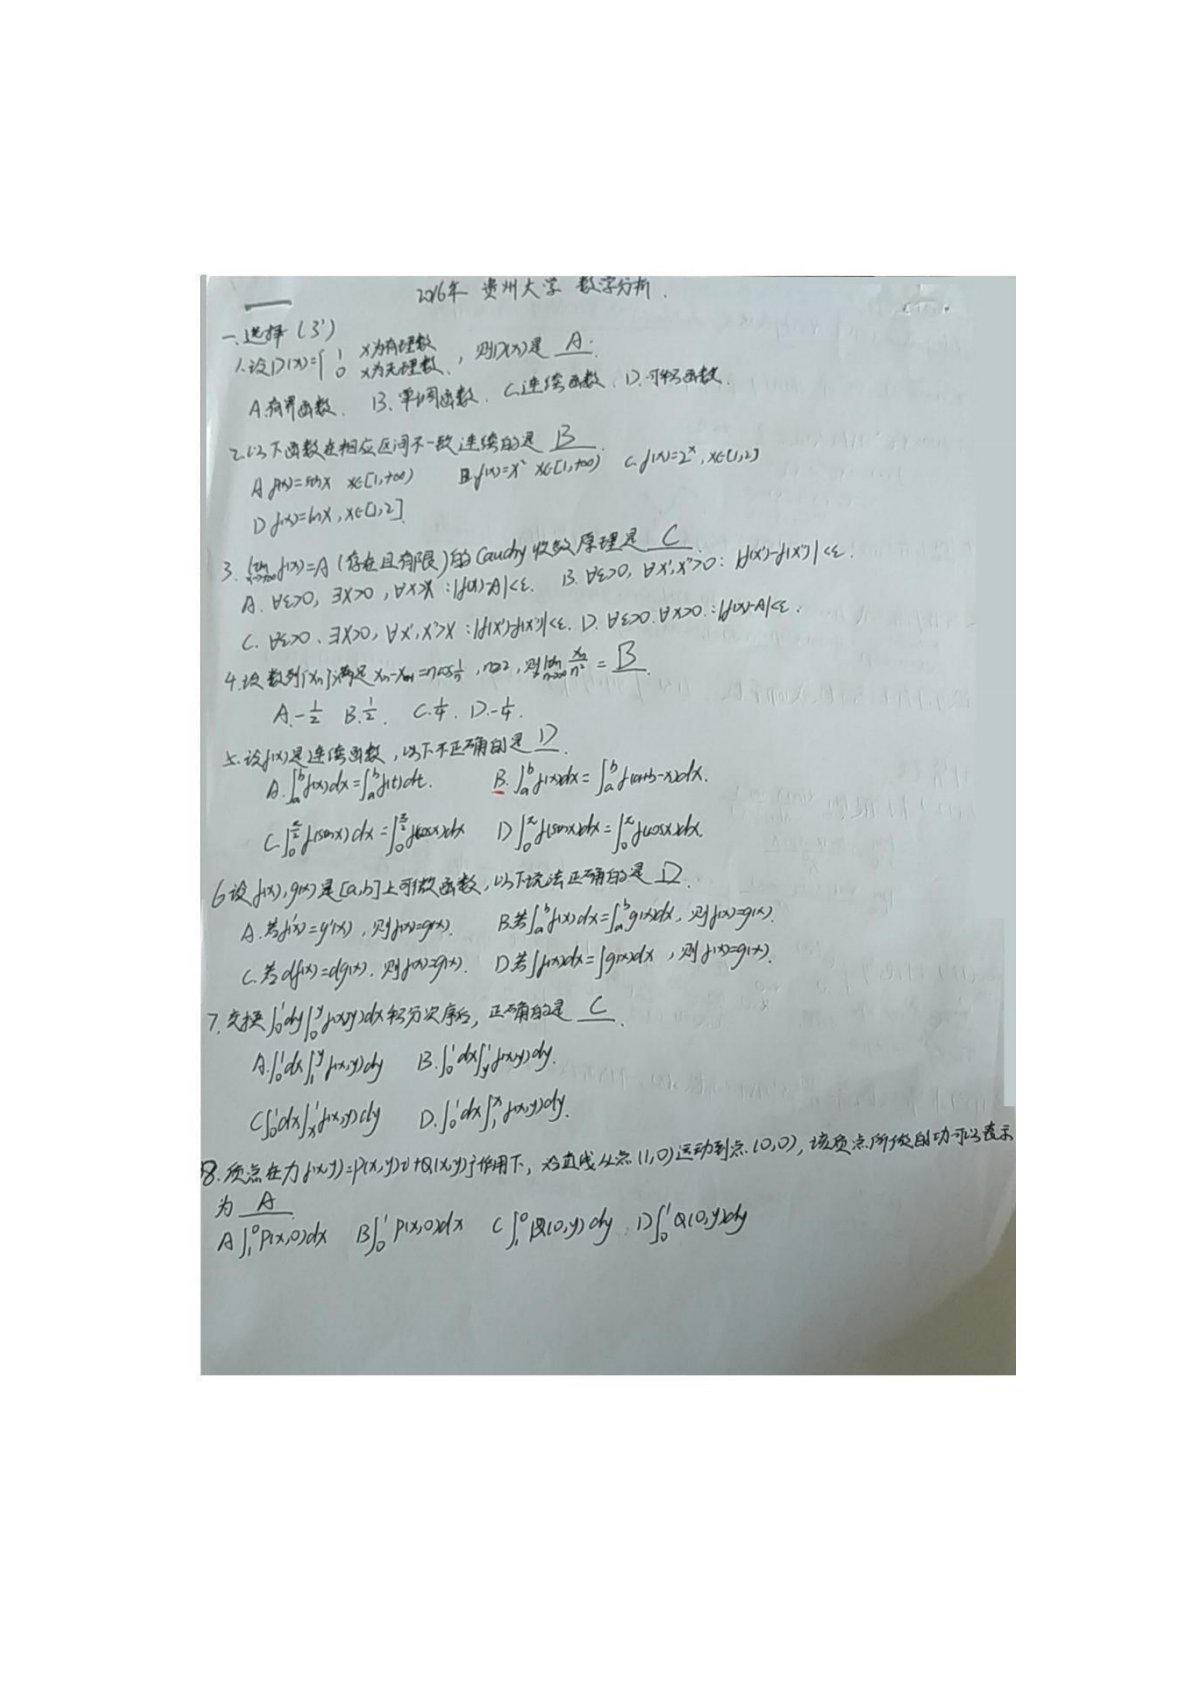 2016年 贵州大学 数学分析.
一、选择(3')
1.设D(x)={ 1 x为有理数 0 x为无理数. , 则D(x)是 A.
A.有界函数. B.单调函数. C.连续函数. D.可积函数.
2.以下函数在相应区间不一致连续的是 B
A f(x)=sinx x∈[1,+∞) B f(x)=x² x∈[1,+∞) C.f(x)=2ˣ, x∈[1,2]
D f(x)=lnx, x∈[1,2].
3. lim f(x)=A (存在且有限)的Cauchy收敛原理是 C.
A. ∀ε>0, ∃X>0, ∀x>X :|f(x)-A|<ε. B. ∀ε>0, ∀x',x''>0: |f(x')-f(x'')|<ε.
C. ∀ε>0, ∃X>0, ∀x',x''>X :|f(x')-f(x'')|<ε. D. ∀ε>0. ∀x>0. :|f(x)-A|<ε.
4.设数列{xₙ}满足 xₙ-xₙ₋₁=ncos1/n, n≥2, 则lim n→∞ xₙ/n² = B.
A.-1/2 B.1/2. C.1/4. D.-1/4.
5.设f(x)是连续函数,以下不正确的是 D.
A.∫ₐᵇf(x)dx=∫ₐᵇf(t)dt. B.∫ₐᵇf(x)dx=∫ₐᵇf(a+b-x)dx.
C.∫₀^(π/2) f(sinx)dx=∫₀^(π/2) f(cosx)dx D ∫₀^π f(sinx)dx=∫₀^π f(cosx)dx.
6.设f(x),g(x)是[a,b]上可微函数,以下说法正确的是 D.
A.若f'(x)=g'(x),则f(x)=g(x). B.若∫ₐᵇf(x)dx=∫ₐᵇg(x)dx,则f(x)=g(x).
C.若df(x)=dg(x),则f(x)=g(x). D若∫f(x)dx=∫g(x)dx,则f(x)=g(x).
7.交换∫₀¹dy∫₀ʸf(x,y)dx积分次序后,正确的是 C.
A.∫₀¹dx∫₁ʸf(x,y)dy B.∫₀¹dx∫ᵧ¹f(x,y)dy.
C∫₀¹dx∫ₓ¹f(x,y)dy D.∫₀¹dx∫₁ˣf(x,y)dy.
8.质点在力f(x,y)=P(x,y)i+Q(x,y)j作用下,沿直线从点(1,0)运动到点(0,0),该质点所做的功可以表示
为 A
A∫₁⁰P(x,0)dx B∫₀¹P(x,0)dx C∫₁⁰Q(0,y)dy D∫₀¹Q(0,y)dy